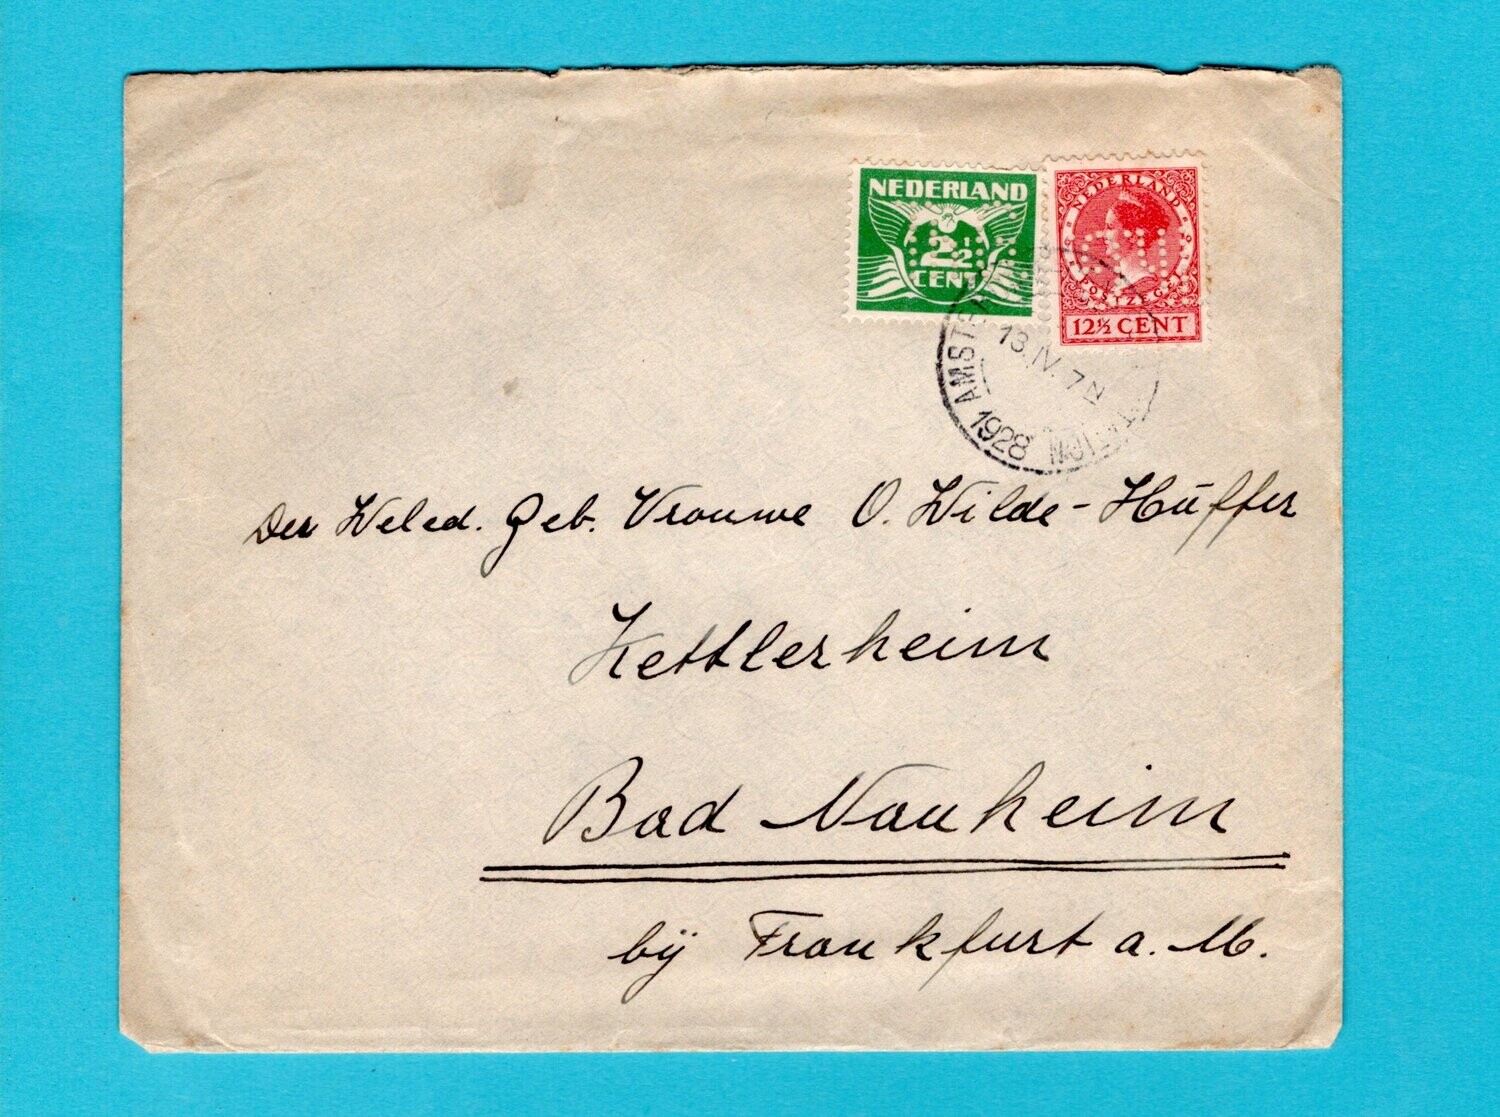 NEDERLAND
2½
CENT
NEDERLAND
POSTZEGEL
12½ CENT
13.IV. 7N
1928
Den Weled. Geb. Vrouwe O. Wilde-Hüffer
Kettlerheim
Bad Nauheim
bij Frankfurt a. M.